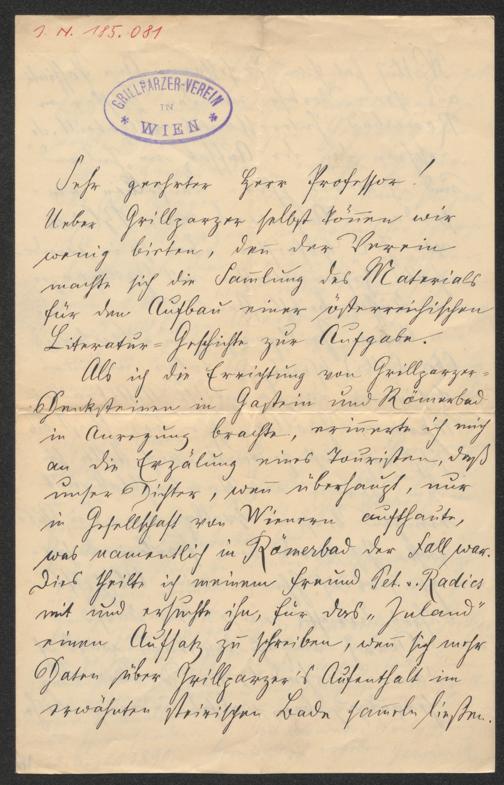 J. N. 185.081
GRILLPARZER-VEREIN
IN
* WIEN *
Sehr geehrter Herr Professor!
Ueber Grillparzer selbst kön̄en wir
wenig bieten, den̄ der Verein
machte sich die Sam̄lung des Materials
für den Aufbau einer österreichischen
Literatur-Geschichte zur Aufgabe.
Als ich die Errichtung von Grillparzer-
Denksteinen in Gastein und Römerbad
in Anregung brachte, erinnerte ich mich
an die Erzälung eines Touristen, daß
unser Dichter, wen̄ überhaupt, nur
in Gesellschaft von Wienern aufthaute,
was namentlich in Römerbad der Fall war.
Dies theilte ich meinem Freund Pet. v. Radics
mit und ersuchte ihn, für das „Inland"
einen Aufsatz zu schreiben, wen̄ sich mehr
Daten über Grillparzer's Aufenthalt im
erwähnten steirischen Bade sam̄eln ließen.